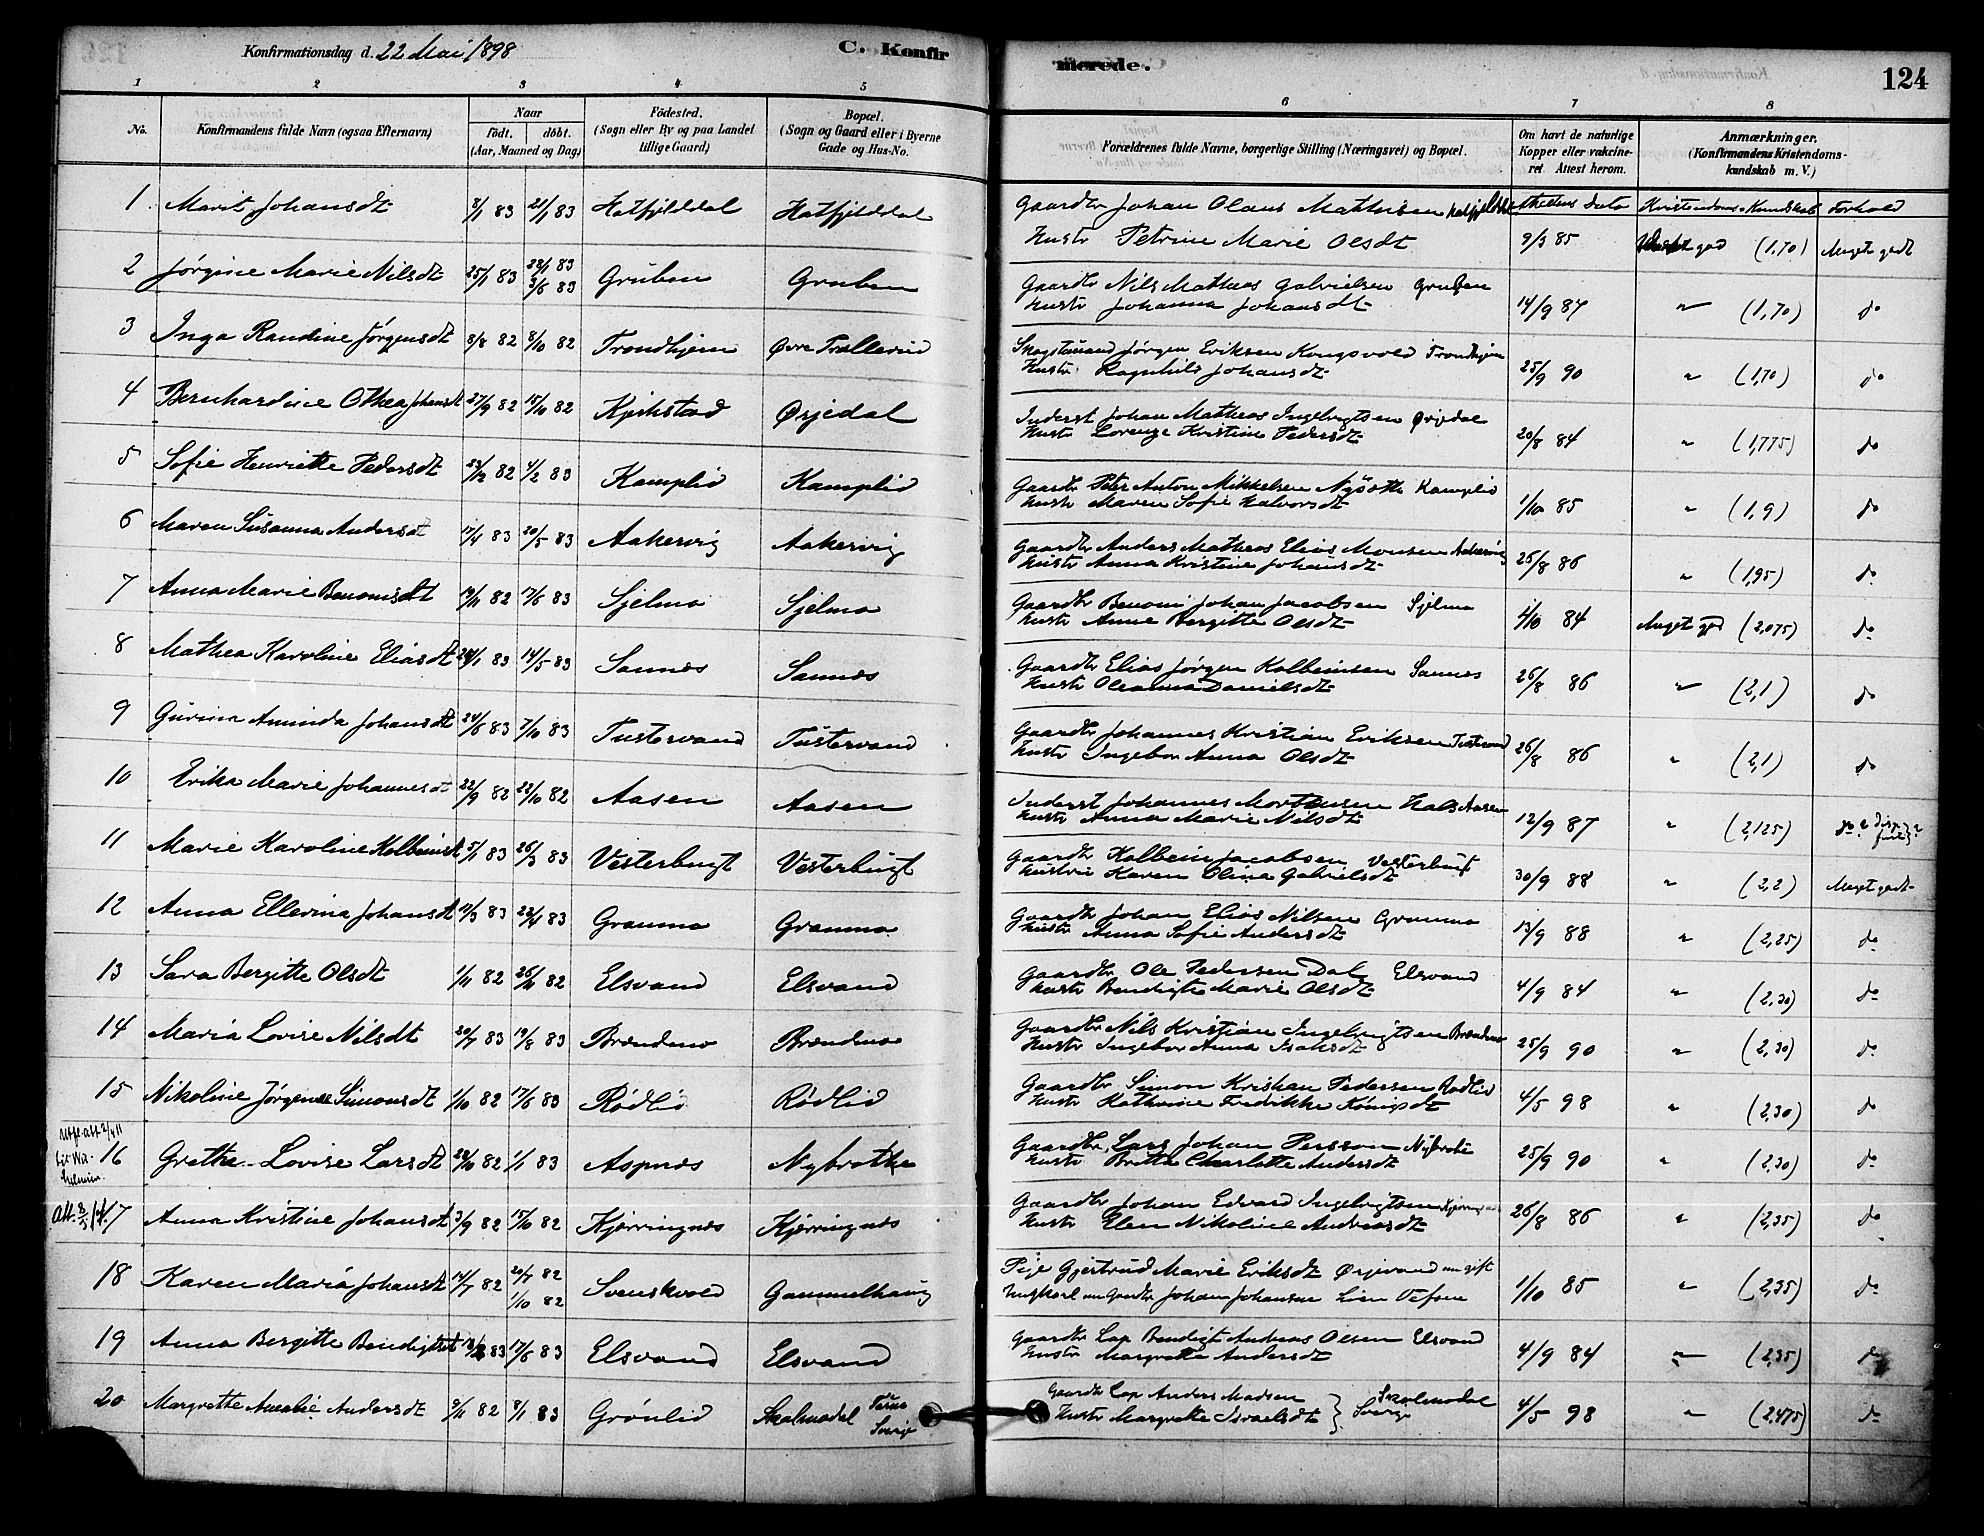 Konfirmationsdag d. 22 Mai 1898
C. Konfirmerede.
124
1 2 3 4 5 6 7 8
No. Konfirmandens fulde Navn (ogsaa Efternavn) Naar født. døbt. (Aar, Maaned og Dag) Fødested. (Sogn eller By og paa Landet tillige Gaard) Bopæl. (Sogn og Gaard eller i Byerne Gade og Hus-No.
Forældrenes fulde Navne, borgerlige Stilling (Næringsvei) og Bopæl. Om havt de naturlige Kopper eller vakcineret. Attest herom. Anmærkninger. (Konfirmandens Kristendomskundskab m. V.)
Attestens Dato Kristendoms-Kundskab Forhold
1 Marit Johansdt 8/1 83 21/1 83 Hatfjelddal Hatfjelddal
Gaardbr Johan Olaus Mathisen Hatfjelddal
Hustr Petrine Marie Olsdt 9/3 85 god (1,70) Meget godt
2 Jørgine Marie Nilsdt 25/1 83 28/1 83 3/6 83 Gruben Gruben
Gaardbr Nils Mathias Gabrielsen Gruben
Hustr Johanna Johansdt 14/9 87 " (1,70) do
3 Inga Randine Jørgensdt 8/8 82 8/10 82 Trondhjem Øvre Trallerud
Jørgen Eriksen Kongsvold Trondhjem
Hustr. Ragnhild Johansdt 25/9 90 " (1,70) do
4 Bernhardine Othea Johansdt 27/9 82 15/10 82 Kjerkstad Ørjedal
Inderst Johan Mathias Ingebrigtsen Ørjedal
Hustr Lorenze Kristine Pedersdt 20/8 84 " (1,775) do
5 Sofie Henriette Pedersdt 23/12 82 4/2 83 Kamplid Kamplid
Gaardbr Peter Anton Mikkelsen Kamplid
Hustr Maren Sofie Halvorsdt 1/10 85 " (1,9) do
6 Maren Susanna Andersdt 17/4 83 20/5 83 Aakervig Aakervig
Gaardbr Anders Mathias Elias Monsen Aakervig
Hustr Anna Kristine Johansdt 26/8 86 " (1,95) do
7 Anna Marie Benonisdt 19/11 82 17/6 83 Sjelmo Sjelmo
Gaardbr Benoni Johan Jacobsen Sjelmo
Hustr Anne Bergitte Olsdt 4/10 84 Meget god (2,075) do
8 Mathea Karoline Eliasdt 24/1 83 14/5 83 Sannes Sannes
Gaardbr Elias Jørgen Kolbeinsen Sannes
Hustr Oleanna Danielsdt 26/8 86 " (2,1) do
9 Gurina Aminda Johansdt 24/8 83 7/10 83 Tustervand Tustervand
Gaardbr Johannes Kristian Eriksen Tustervand
Hustr Ingebor Anna Olsdt 26/8 86 " (2,1) do
10 Erika Marie Johannesdt 22/9 82 22/10 82 Aasen Aasen
Inderst Johannes Mortensen Hals Aasen
Hustr Anna Marie Nilsdt 12/9 87 " (2,125) do
11 Marie Karoline Kolbeinsdt 5/1 83 26/3 83 Vesterbugt Vesterbugt
Gaardbr Kolbein Jacobsen Vesterbugt
Hustru Karen Olina Gabrielsdt 30/9 88 " (2,2) Meget godt
12 Anna Ellerina Johansdt 17/3 83 22/4 83 Granmo Granmo
Gaardbr Johan Elias Nilsen Granmo
Hustr Anna Sofie Andersdt 13/9 88 " (2,25) do
13 Sara Bergitte Olsdt 1/11 82 26/11 82 Elsvand Elsvand
Gaardbr Ole Pedersen Dal Elsvand
Hustr Bendigte Marie Olsdt 4/9 84 " (2,30) do
14 Maria Lovise Nilsdt 20/7 83 19/8 83 Brendmo Brendmo
Gaardbr Nils Kristian Ingebrigtsen Brendmo
Hustr Ingebor Anna Isaksdt 25/9 90 " (2,30) do
15 Nikoline Jørgine Simonsdt 1/10 82 17/6 83 Rødlid Rødlid
Gaardbr Simon Kristian Pedersen Rødlid
Hustr Kathrine Fredrikke 4/5 98 " (2,30) do
16 Grethe Lovise Larsdt 28/10 82 1/1 83 Aspnes Nybrotte
Gaardbr Lars Johan Persson
Hustr Britta Charlotte Andersdt 25/9 90 " (2,30) do
17 Anna Kristine Johansdt 3/9 82 15/10 82 Kjerringnes Kjerringnes
Gaardbr Johan Edvard Ingebrigtsen Kjerringnes
Hustr Elen Nikoline Andreasdt 26/8 86 " (2,35) do
18 Karen Maria Johansdt 14/7 82 20/7 82 1/10 82 Svenskvold Gammelhaug
Pige Gjertrud Marie Eriksdt Ørjevand nu gift
Ungkarl nu Gaardbr Johan Johansen Lien Vefsen 1/10 85 " (2,35) do
19 Anna Bergitte Bendigtsdt 13/2 83 17/6 83 Elsvand Elsvand
Gaardbr Lap Bendigt Andreas Olsen Elsvand
Hustr Margrethe Andersdt 4/9 84 " (2,35) do
20 Margrethe Amalie Andersdt 9/11 82 8/1 83 Grønlid Skalmodal Tärna Sverige
Gaardbr Lap Anders Madsen
Hustr Margrethe Israelsdt } Skalmodal Sverige 4/5 98 " (2,475) do